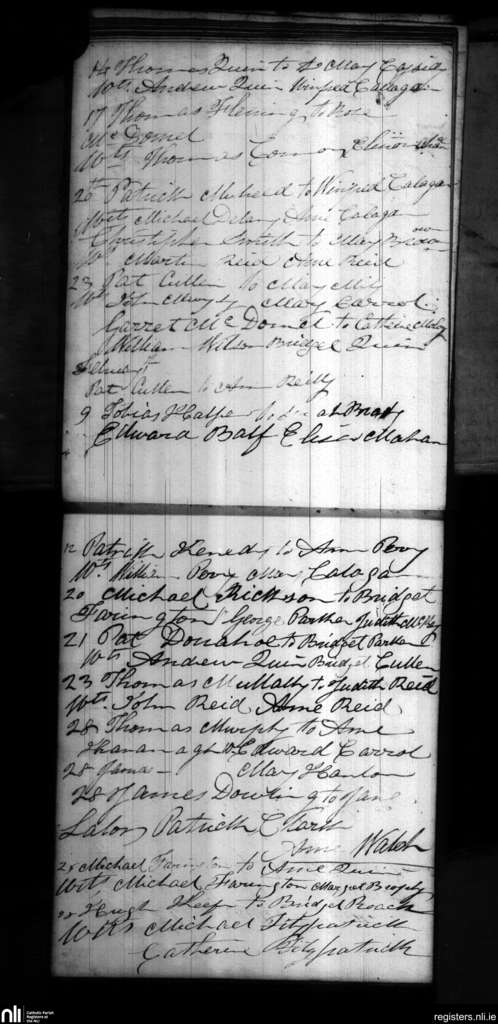 14 Thomas Quin to Mary Cassidy
Wts Andrew Quin Winifred Calaga
17 Thomas Fleming to Rose
McDonel
Wts Thomas Connor
20th Patrick to Winifred Calagan
Wits Michael Delany Anne Calagan
Christopher Smith to Mary
Wts Martin Reid Anne Reid
23 Pat Cullen to Mary
Wts John Mary Carrol
Garret McDonel to Catherine
William Wilson Bridget Quin
Pat Cullen to Ann Reilly
9 Tobias to Brady
Edward Balf Elisa Mahan
12 Patrick Kenedy to Ann Pory
Wts William Pory Mary Calaga
20 Michael Hickson to Bridget
Farington George Parker Judith
21 Pat Donahoe to Bridget Parker
Wts Andrew Quin Bridget Cullen
23 Thomas McMullally to Judith Reid
Wts. John Reid Anne Reid
28 Thomas Murphy to Ame
Kavanagh W Edward Carrol
28 Mary Hanlon
28 James Dowling to Jane
Lalor Patrick Clark
Anne Walsh
28 Michael Farington to Anne Quin
Wits Michael Farington Margaret Brophy
28 Hugh to Bridget Roach
Wits Michael Fitzpatrick
Catherine Fitzpatrick
nli
Catholic Parish
Registers at
the NLI
registers.nli.ie